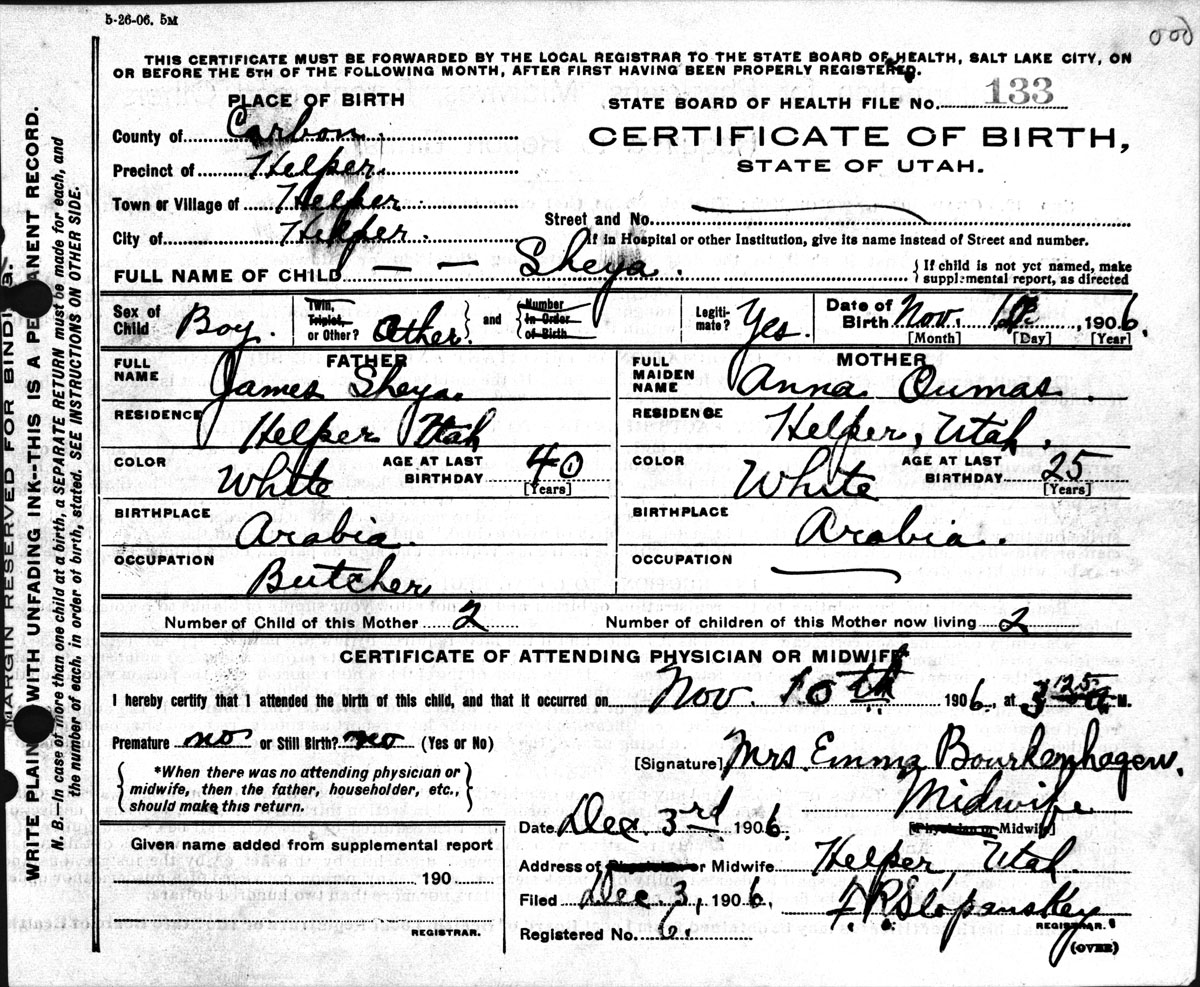 5-26-06. 5M
THIS CERTIFICATE MUST BE FORWARDED BY THE LOCAL REGISTRAR TO THE STATE BOARD OF HEALTH, SALT LAKE CITY, ON
OR BEFORE THE 5TH OF THE FOLLOWING MONTH, AFTER FIRST HAVING BEEN PROPERLY REGISTERED.
PLACE OF BIRTH
STATE BOARD OF HEALTH FILE NO. 133
County of Carbon.
CERTIFICATE OF BIRTH,
STATE OF UTAH.
Precinct of Helper.
Town or Village of Helper.
Street and No.
City of Helper.
If in Hospital or other Institution, give its name instead of Street and number.
FULL NAME OF CHILD — — Sheya.
{If child is not yet named, make
supplemental report, as directed
Sex of Child Boy.
Twin, Triplet, or Other? Other. } and { Number in Order of Birth
Legiti-mate? Yes.
Date of Birth Nov. 1906.
[Month] [Day] [Year]
FATHER
FULL NAME James Sheya.
MOTHER
FULL MAIDEN NAME Anna Oumas.
RESIDENCE Helper Utah
RESIDENCE Helper, Utah.
COLOR White AGE AT LAST BIRTHDAY 40 [Years]
COLOR White AGE AT LAST BIRTHDAY 25 [Years]
BIRTHPLACE Arabia.
BIRTHPLACE Arabia.
OCCUPATION Butcher
OCCUPATION
Number of Child of this Mother 2 Number of children of this Mother now living 2
CERTIFICATE OF ATTENDING PHYSICIAN OR MIDWIFE*
I hereby certify that I attended the birth of this child, and that it occurred on Nov. 10th 1906, at M.
Premature no or Still Birth? no (Yes or No)
[Signature] Mrs. Emma Bourkenhagen.
Midwife
[Physician or Midwife]
{*When there was no attending physician or
midwife, then the father, householder, etc.,
should make this return.}
Date Dec 3rd 1906.
Given name added from supplemental report
Address of Physician or Midwife Helper, Utah.
190
Filed Dec 3, 1906. F. R. Slopanskey
REGISTRAR.
Registered No. 6.
REGISTRAR.
(OVER)
MARGIN RESERVED FOR BINDING.
WRITE PLAINLY WITH UNFADING INK--THIS IS A PERMANENT RECORD.
N. B.--In case of more than one child at a birth, a SEPARATE RETURN must be made for each, and
the number of each, in order of birth, stated. SEE INSTRUCTIONS ON OTHER SIDE.